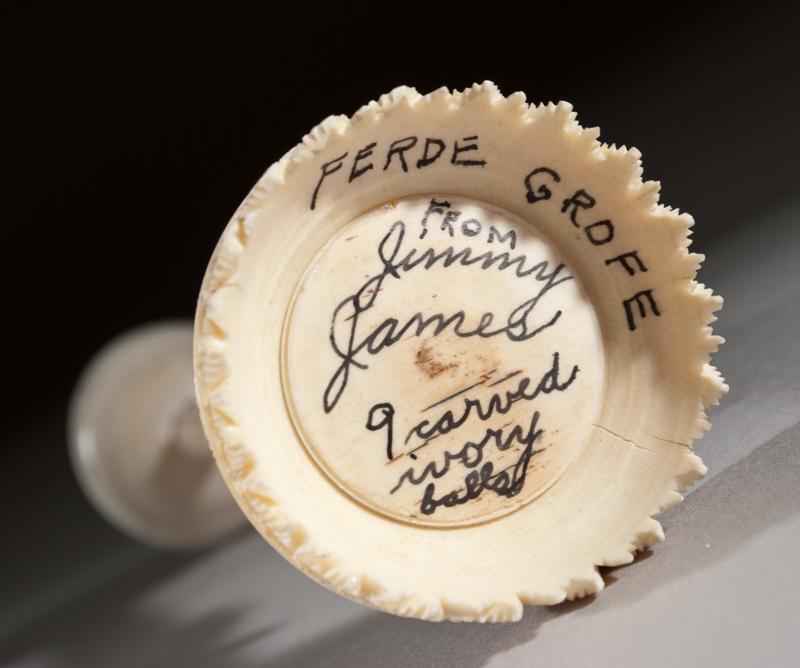 FERDE GROFE
FROM
Jimmy
James
9 carved
ivory
balls